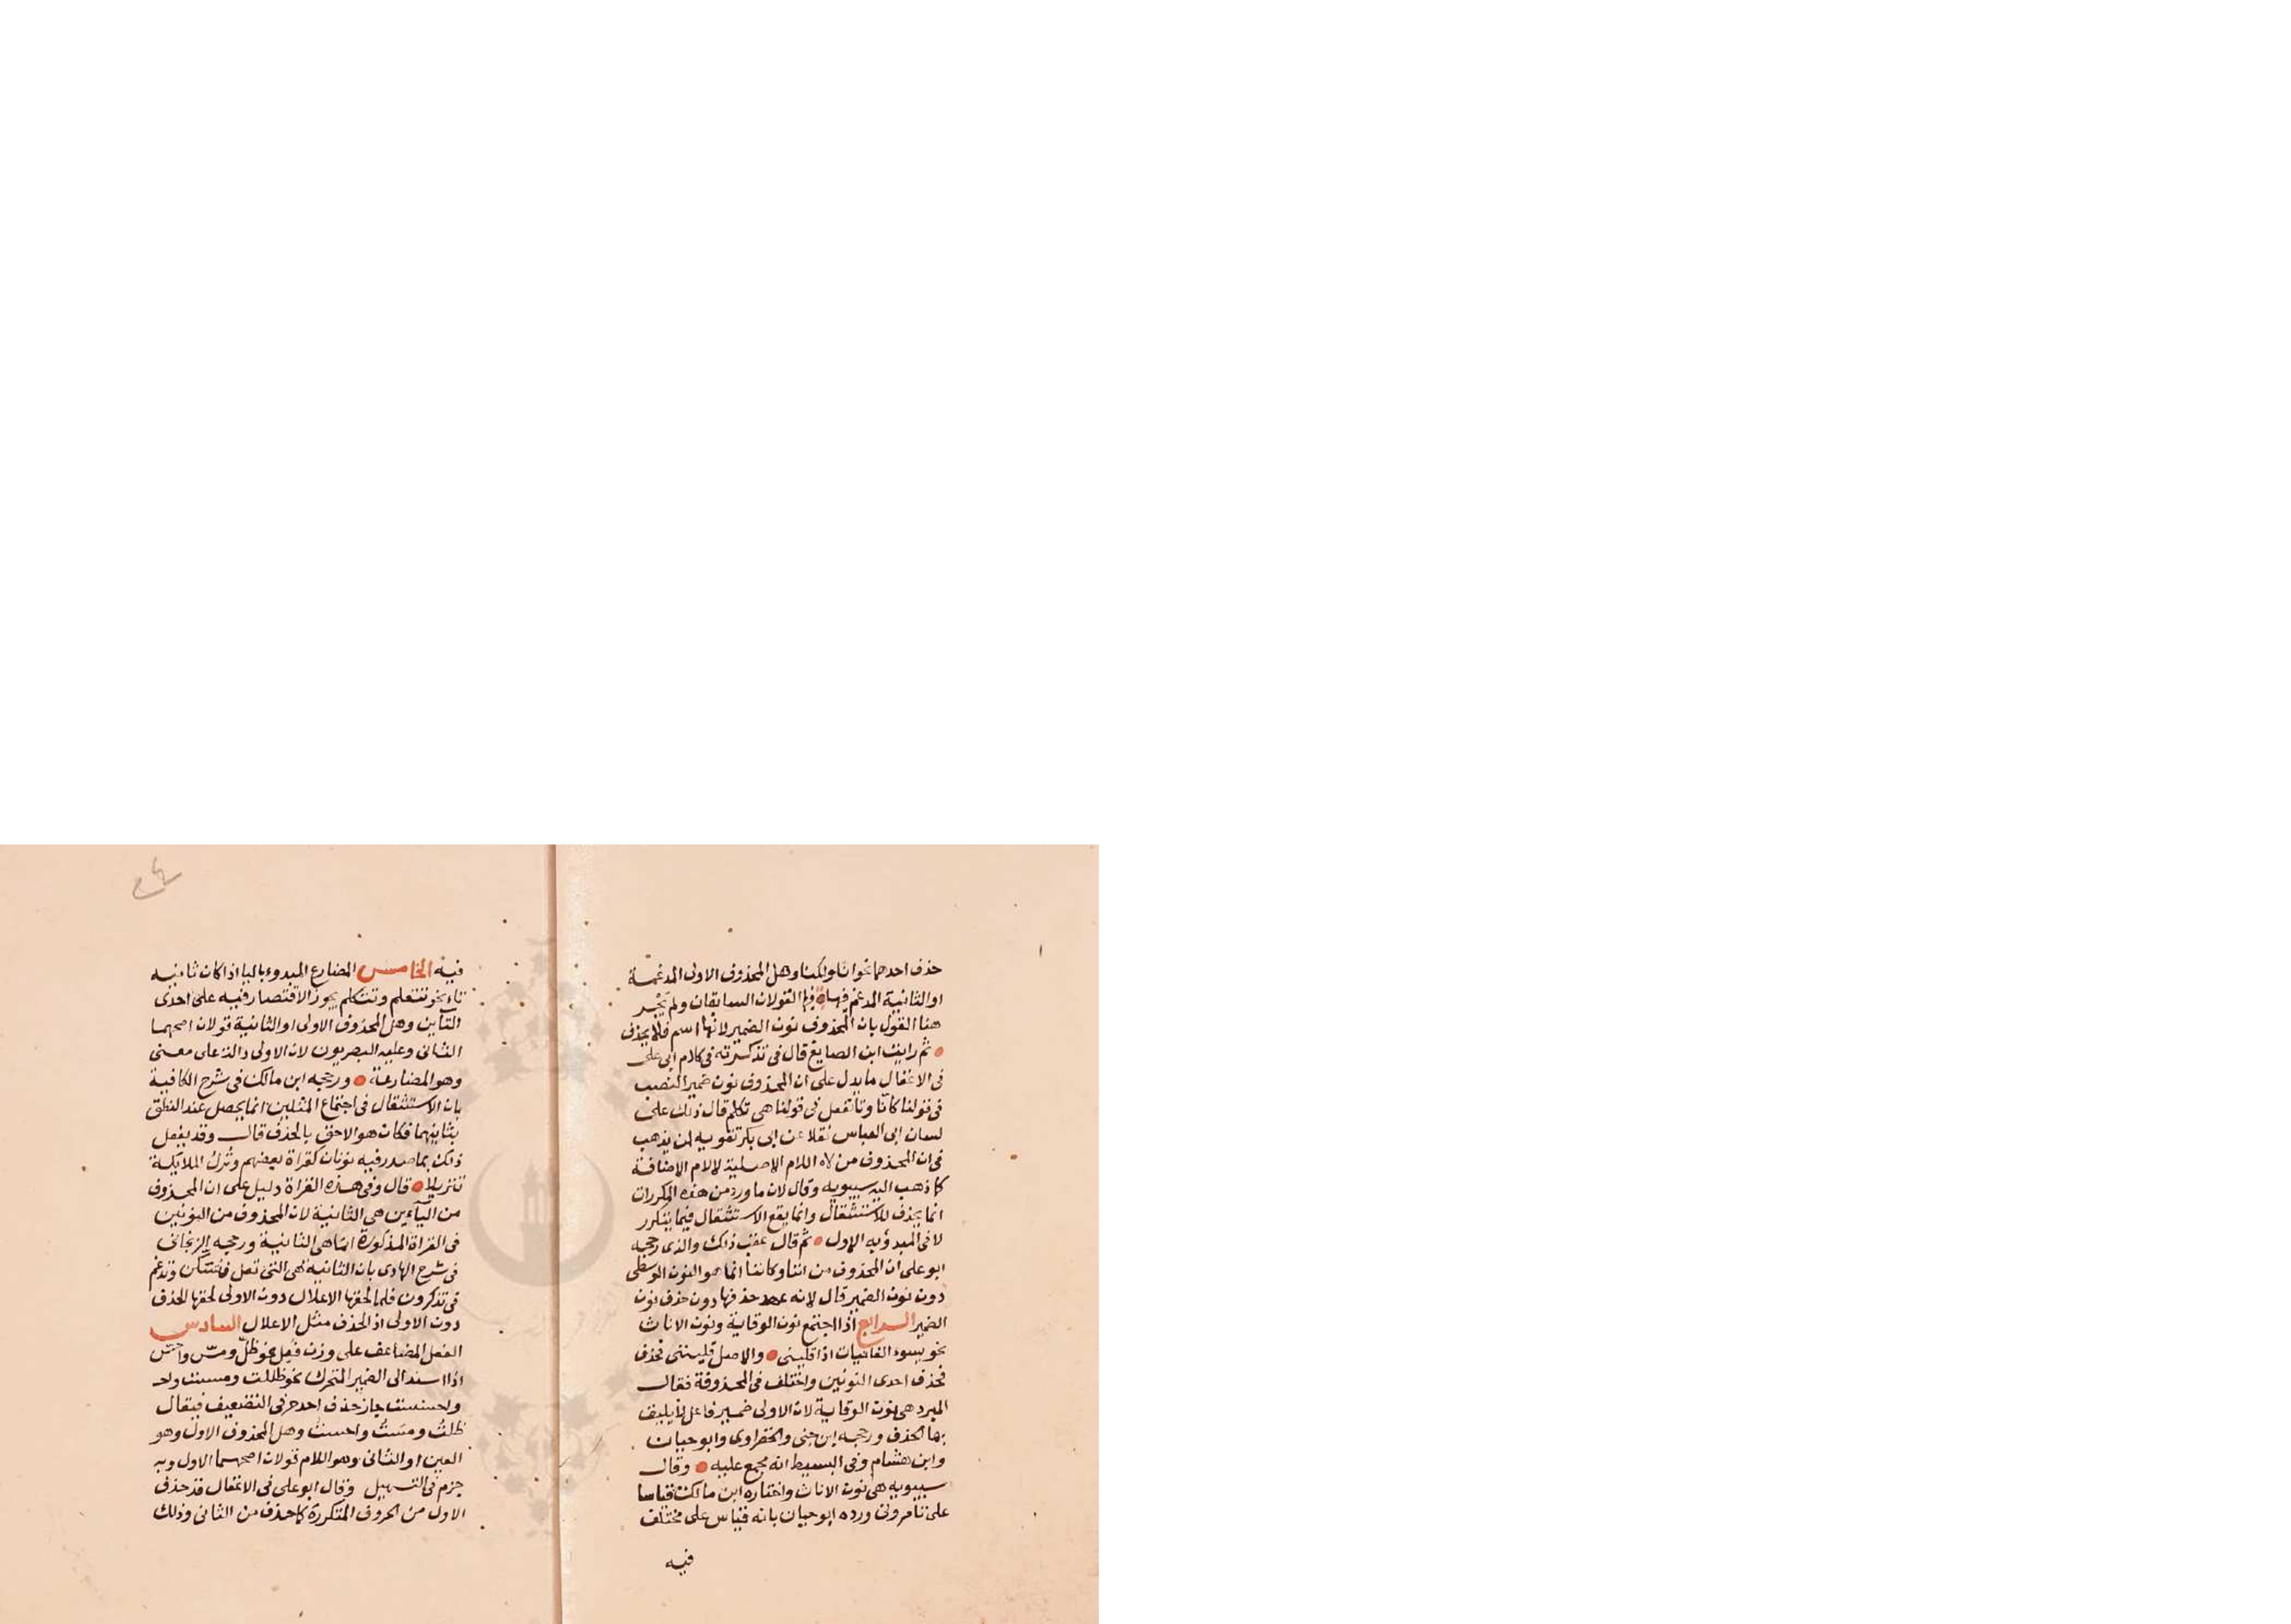 حذف احدهما نحو انا ولكنا وهل المحذوف الاولى المدغمة
او الثانية المدغم فيها فيه القولان السابقان ولم يجر
هنا القول بان المحذوف نون الضمير لانها اسم فلا يحذف
ثم رايت ابن الصايغ قال في تذكرته في كلام ابى على
في الاغفال ما يدل على ان المحذوف نون ضمير النصب
فى قولنا كانا وتا تفعل فى قولنا هى تكلم قال ذلك على
لسان ابى العباس نقلا عن ابى بكر تقوية لمن يذهب
فى ان المحذوف من لاه اللام الاصلية لا لام الاضافة
كما ذهب اليه سيبويه وقال لان ما ورد من هذه المكررات
انما يحذف للاستثقال وانما يقع الاستثقال فيما يتكرر
لا فى المبدؤ به الاول ثم قال عقب ذلك والذى رجحه
ابو على ان المحذوف من اننا وكاننا انما هو النون الوسطى
دون نون الضمير قال لانه عهد حذفها دون حذف نون
الضمير الرابع اذا اجتمع نون الوقاية ونون الاناث
نحو يسوء الفاليات اذا فلينى والاصل فلينني فحذف
فحذف احدى النونين واختلف فى المحذوفة فقال
المبرد هى نون الوقاية لان الاولى ضمير فاعل لا يليق
بها الحذف ورجحه ابن جنى والخضراوى وابو حيان
وابن هشام وفى البسيط انه مجمع عليه وقال
سيبويه هى نون الاناث واختاره ابن مالك قياسا
على تامرونى ورده ابو حيان بانه قياس على مختلف
فيه
فيه الخامس المضارع المبدوء بالتا اذا كان ثانيه
تاء نحو تتعلم وتتكلم يجوز الاقتصار فيه على احدى
التأين وهل المحذوف الاولى او الثانية قولان اصحهما
الثانى وعليه البصريون لان الاولى دالة على معنى
وهو المضارعة ورجحه ابن مالك فى شرح الكافية
بان الاستثقال فى اجتماع المثلين انما يحصل عند النطق
بثانيهما فكان هو الاحق بالحذف قال وقد يفعل
ذلك بما صدر فيه نونان كقراة بعضهم ونزل الملائكة
تنزيلا قال وفى هذه القراة دليل على ان المحذوف
من التآءين هى الثانية لان المحذوف من النونين
فى القراة المذكورة انما هى الثانية ورجحه الزنجانى
فى شرح الهادى بان الثانية هى التى تعل فتسكن وتدغم
فى تذكرون فلما لحقها الاعلال دون الاولى لحقها الحذف
دون الاولى اذ الحذف مثل الاعلال السادس
الفعل المضاعف على وزن فعل نحو ظلّ ومسّ واحسّ
اذا اسند الى الضمير المتحرك نحو ظللت ومسست ولـ
واحسست جاز حذف احد حرفى التضعيف فيقال
ظلت ومست واحست وهل المحذوف الاول وهو
العين او الثانى وهو اللام قولان اصحهما الاول وبه
جزم فى التسهيل وقال ابو على فى الاغفال قد حذف
الاول من الحروف المتكررة كما حذف من الثانى وذلك